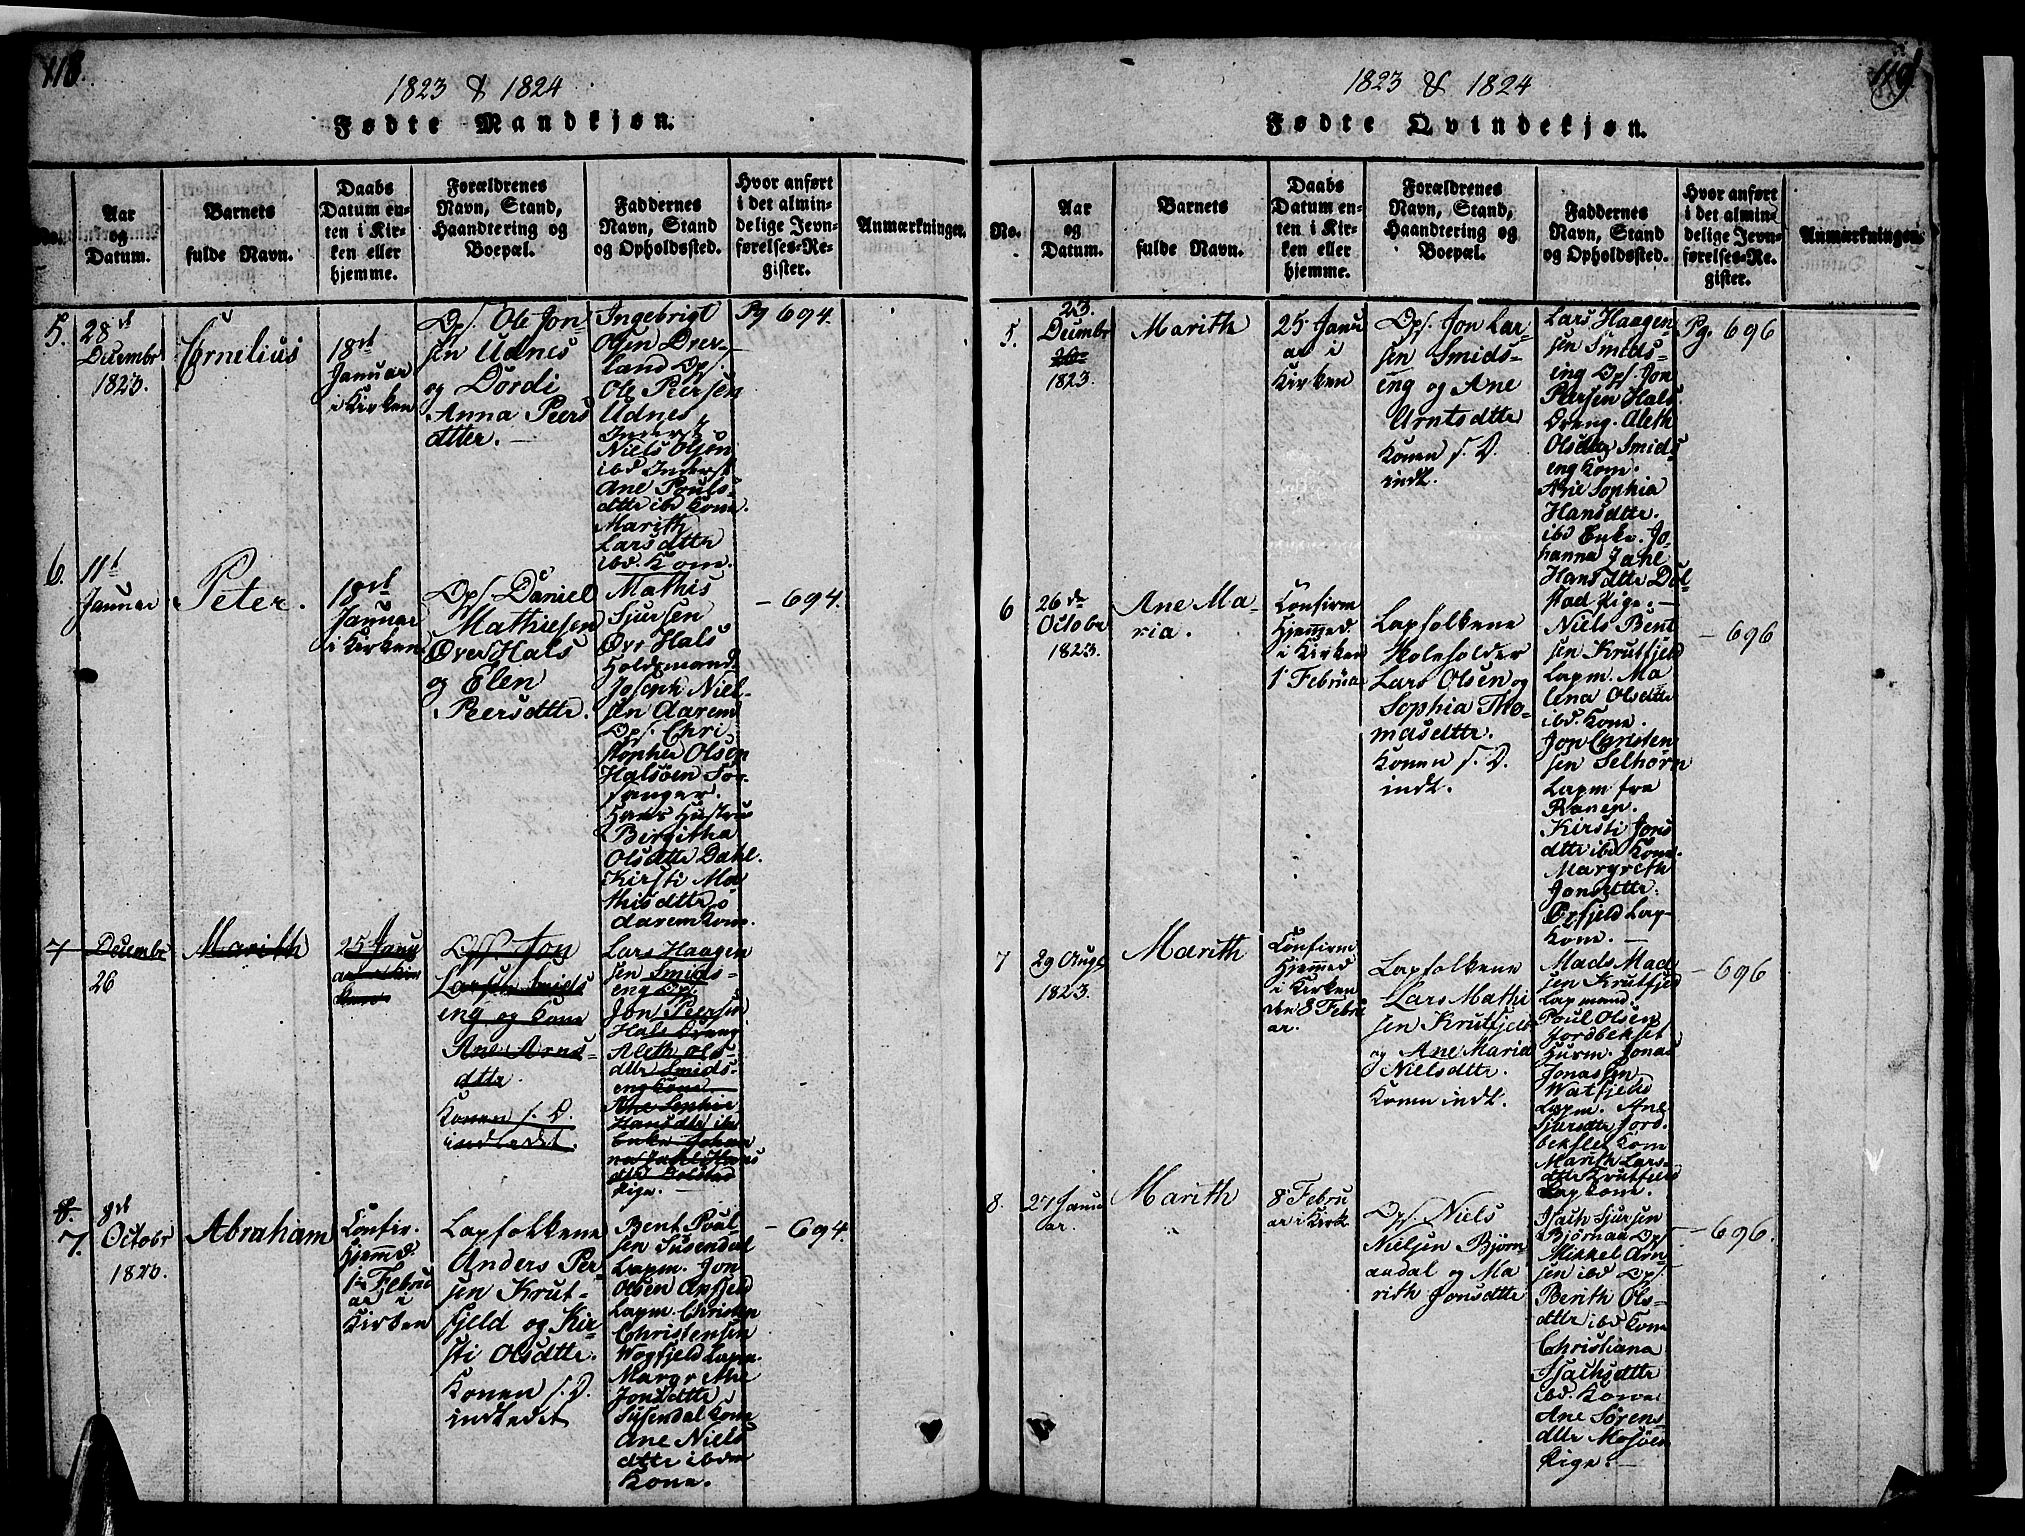 118.
1823 & 1824
Fødte Mandkjøn.
No.
Aar
og
Datum.
Barnets
fulde Navn.
Daabs
Datum en-
ten i Kir-
ken eller
hjemme.
Forældrenes
Navn, Stand,
Haandtering og
Boepæl.
Faddernes
Navn, Stand
og Opholdssted.
Hvor anført
i det almin-
delige Jevn-
førelses-Re-
gister.
Anmærkninger.
5.
28de
Decembr
1823.
Cornelius
18de
Januar
i Kirken
Ops. Ole Jon-
sen Udnes
og Dordi
Anna Peers
dtter.
Ingebrigt
Olsen Drev-
land Ops.
Ole Peersen
Udnes
Inderst
Niels Olsøn
ibd Inderst
Ane Pouls-
dtter ibd Kone.
Marith
Larsdttr
ibd. Kone.
Pg 694.
6.
11te
Januar
Peter.
18de
Januar
i Kirken
Ops. Daniel
Mathiesen
Øvr Hals
og Elen
Peersdttr.
Mathis
Sjursen
Øvr Hals
Holdsmand.
Joseph Niel-
sen Aarem
Ops. Chri
stopher Olsen
Halsöen For
sanger.
Hans Hustrue
Birgitha
Olsdttr Dahl.
Kirsti Ma
thisdttr
Aarem Kone.
- 694.
7
Decembr
26
Marith
25 Janu
ar i Kir
ken
Ops. Jon
Larsen Smids
eng og Kone
Ane Arns-
dttr.
Konen f. D.
indledet.
Lars Haagen
sen Smids-
eng Op.
Jon Peersen
Hals Dreng
Aleth Ols-
dttr Smids-
eng Kone
Ane Sophia
Hansdttr ibd
Enke Johan
na Jahl Hans
dttr Dolstad
Pige.
8.
7.
8de
Octobr
1823.
Abraham
Confir.
Hjemmed.
1te Febru
ar i
Kirken
Lapfolkene
Anders Per-
sen Krut-
fjeld og Kir-
sti Olsdttr.
Konen f. D.
indledet
Bent Poul-
sen Susendal
Lapm. Jon
Olsen Øpfjeld
Lapm. Christen
Christensen
Wogfjeld Lapm.
Margr the
Jonsdttr
Susendal Kone
Ane Niels
dttr ibdm
Kone.
- 694.
119.
1823 & 1824
Fødte Qvindekjøn.
No.
Aar
og
Datum.
Barnets
fulde Navn.
Daabs
Datum en-
ten i Kir-
ken eller
hjemme.
Forældrenes
Navn, Stand,
Haandtering og
Boepæl.
Faddernes
Navn, Stand
og Opholdssted.
Hvor anført
i det almin-
delige Jevn-
førelses-Re-
gister.
Anmærkninger.
5.
23.
Decembr
26de
1823.
Marith
25 Janu
ar i
Kirken
Ops. Jon Lar-
sen Smids-
eng og Ane
Arntsdttr
Konen f. D.
indl.
Lars Haagen
sen Smids-
eng Ops. Jon
Peersen Hals
Dreng. Aleth
Olsdttr Smids-
eng Kone.
Ane Sophia
Hansdttr.
ibd Enke. Jo-
hanna Jahl
Hansdttr Dol-
stad Pige.
Pg. 696
6
26de
Octobr
1823.
Ane Ma-
ria.
Confirm
Hjemmed
i Kirken
1 Februar
Lapfolkene
Skoleholder
Lars Olsen og
Sophia Tho-
masdttr.
Konen f. D.
indl.
Niels Bent
sen Krutfjeld
Lapm. Ma
lena Olsdttr
ibd. Kone.
Jon Christen
sen Selhorn
Lapm fra
Ranen.
Kirsti Jons
dttr ibd Kone.
Margreth
Jonsdttr.
Øpfjeld Lap-
Kone.
- 696
7
29 Augs
1823.
Marith
Confirm
Hjemmed
i Kirken
den 8 Febru
ar.
Lapfolkene
Lars Mathi
sen Krutfjeld
og Ane Maria
Nielsdttr.
Konen indl.
Mads Mad
sen Krutfjeld
Lapmand.
Poul Olsen
Jordbekset
Huusm. Jonas
Jonassen
Watfjeld
Lapm. Ane
Sjursdttr Jord-
bekslet Kone
Marith Lars-
dttr Krutfjeld
Lapkone.
- 696
8.
27 Janu
ar.
Marith
8 Febru
ar i Kirk
Ops. Niels
Nielsen Bjørn
aadal og Ma
rith Jonsdttr
Isach Sjursen
Bjørnaa Ops
Mikkel Arn-
sen ibd Ops.
Berith Ols-
dttr ibd Kone
Christiana
Isachsdttr
ibd. Kone
Ane Sørens-
dttr Mosøen
Pige.
- 696.